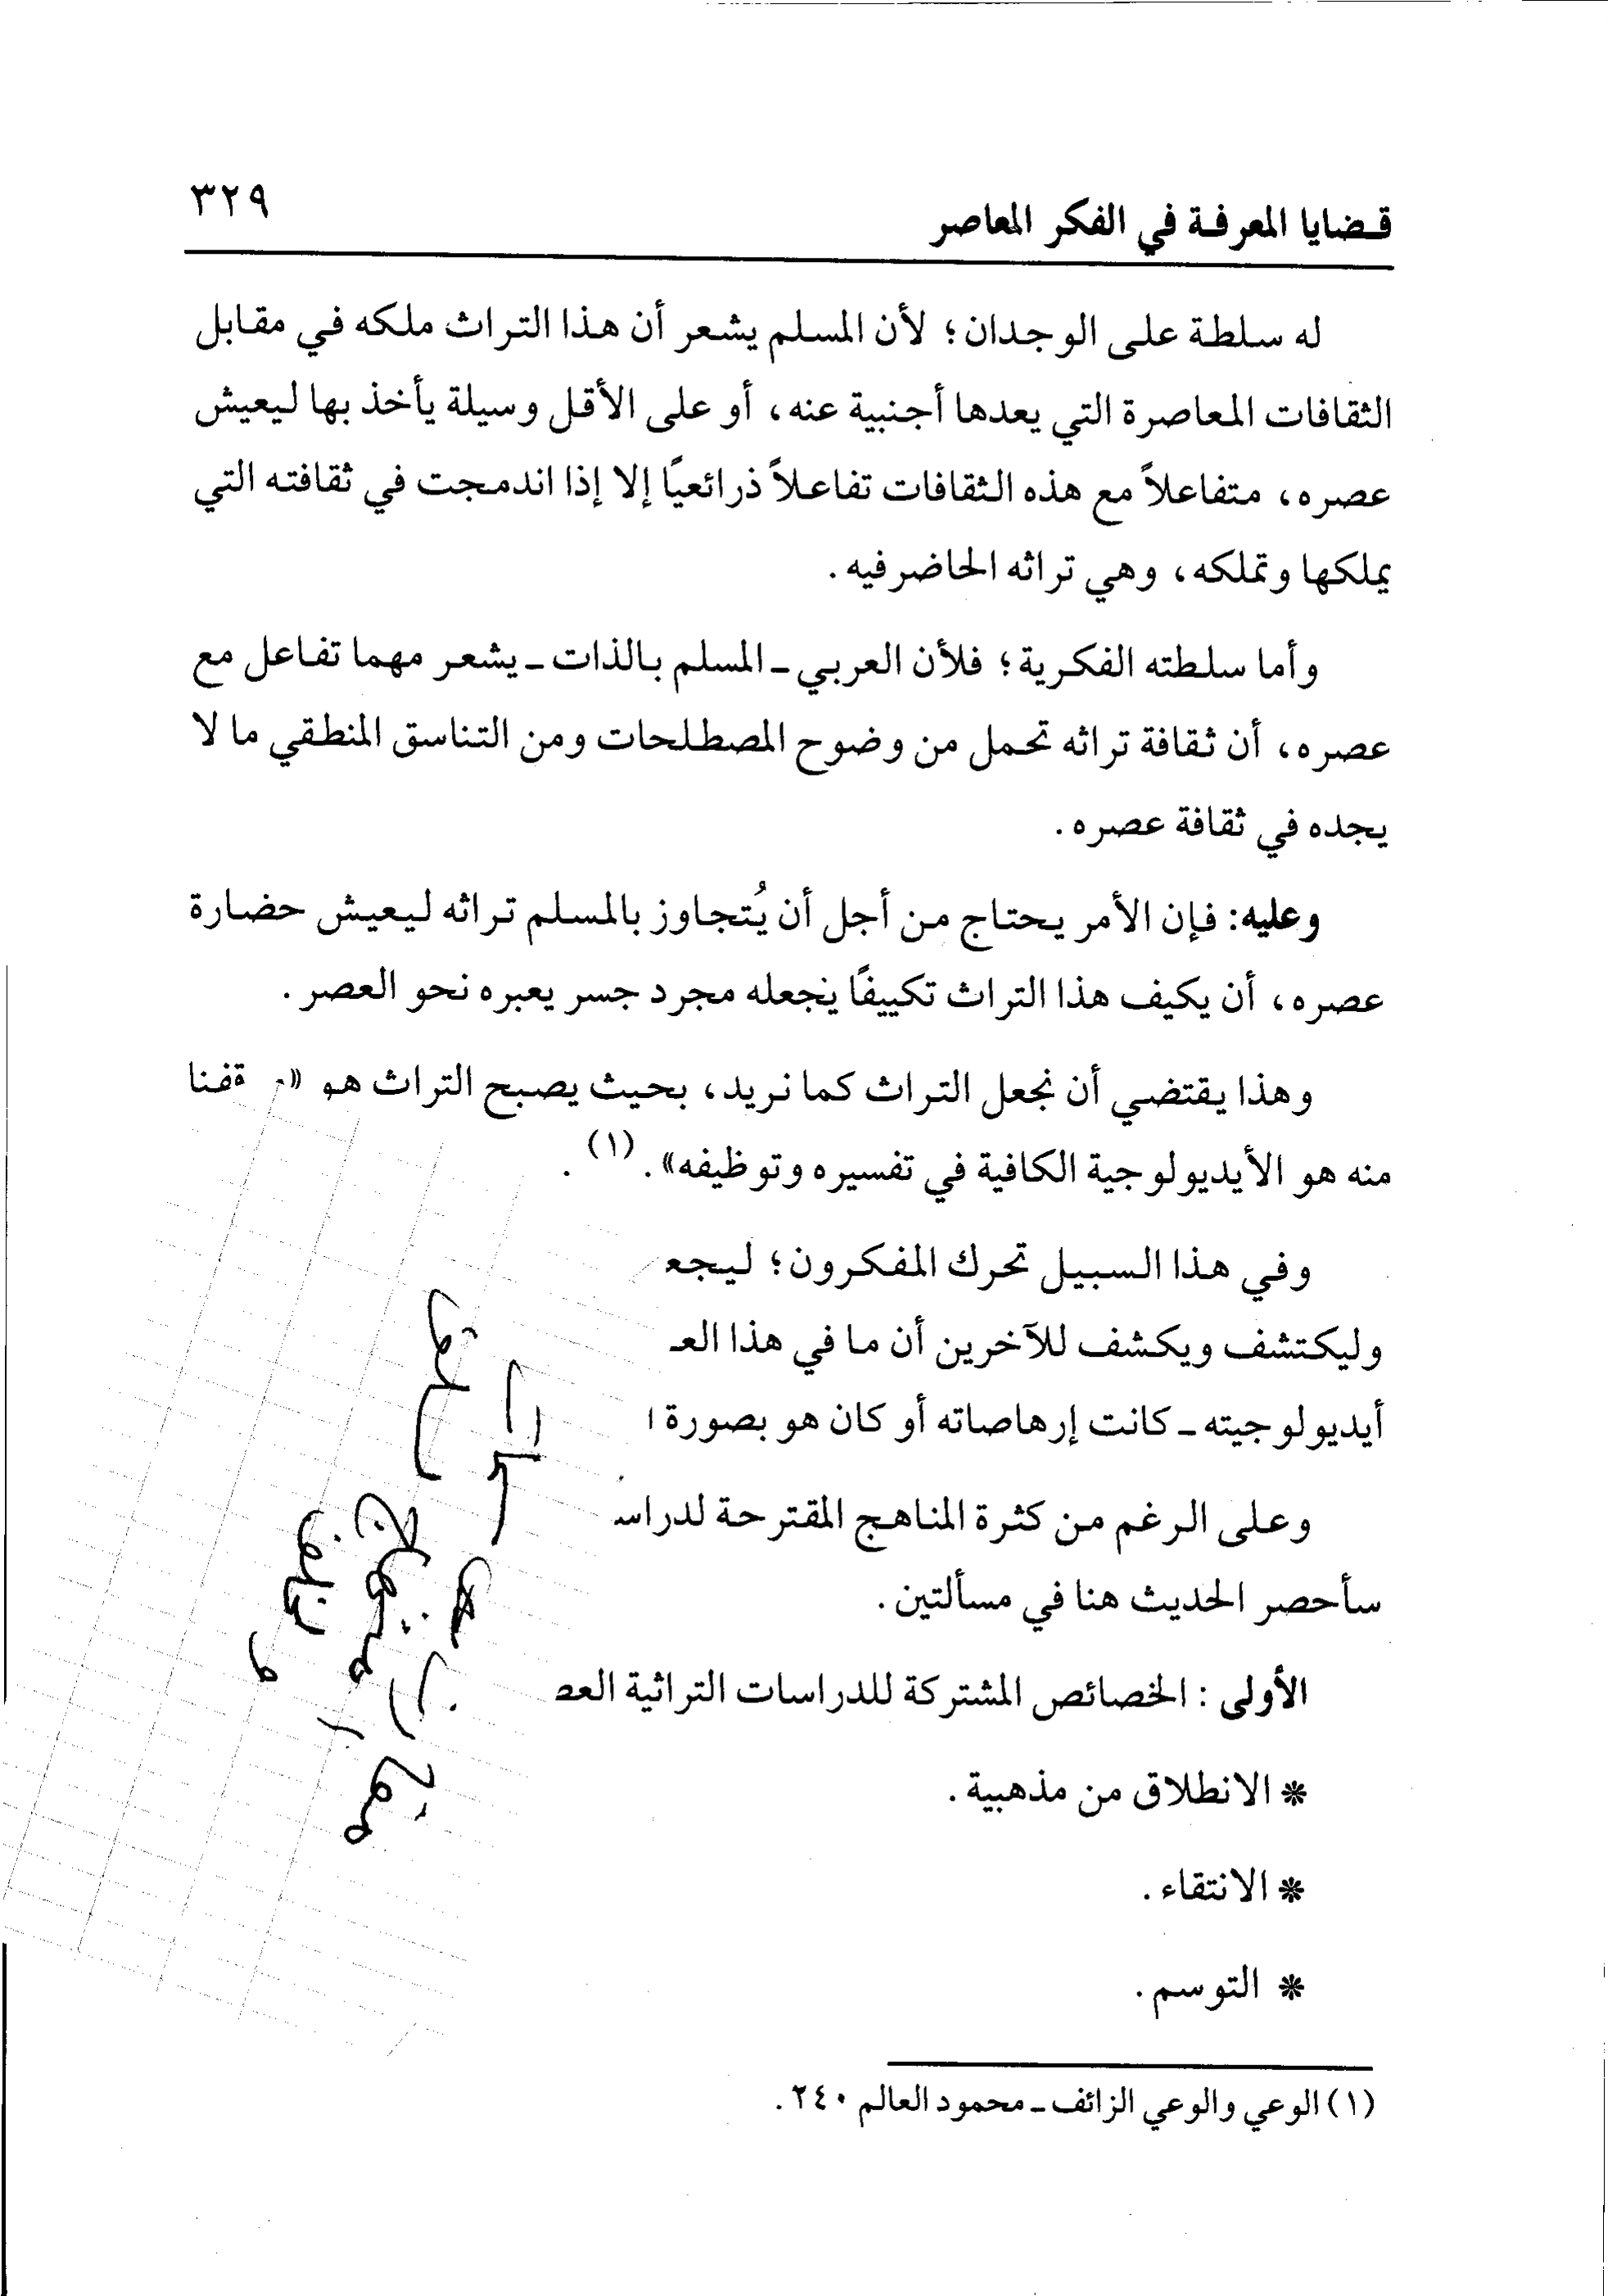 قضايا المعرفة في الفكر المعاصر ٣٢٩
له سلطة على الوجدان؛ لأن المسلم يشعر أن هذا التراث ملكه في مقابل
الثقافات المعاصرة التي يعدها أجنبية عنه، أو على الأقل وسيلة يأخذ بها ليعيش
عصره، متفاعلاً مع هذه الثقافات تفاعلاً ذرائعيًا إلا إذا اندمجت في ثقافته التي
يملكها وتملكه، وهي تراثه الحاضر فيه.
وأما سلطته الفكرية؛ فلأن العربي ـ المسلم بالذات ـ يشعر مهما تفاعل مع
عصره، أن ثقافة تراثه تحمل من وضوح المصطلحات ومن التناسق المنطقي ما لا
يجده في ثقافة عصره.
وعليه: فإن الأمر يحتاج من أجل أن يُتجاوز بالمسلم تراثه ليعيش حضارة
عصره، أن يكيف هذا التراث تكييفًا يجعله مجرد جسر يعبره نحو العصر.
وهذا يقتضي أن نجعل التراث كما نريد، بحيث يصبح التراث هو «
منه هو الأيديولوجية الكافية في تفسيره وتوظيفه». (١).
وفي هذا السبيل تحرك المفكرون؛
وليكتشف ويكشف للآخرين أن ما في هذا
أيديولوجيته ـ كانت إرهاصاته أو كان هو بصورة
وعلى الرغم من كثرة المناهج المقترحة
سأحصر الحديث هنا في مسألتين.
الأولى : الخصائص المشتركة للدراسات التراثية
* الانطلاق من مذهبية.
* الانتقاء.
* التوسم.
(١) الوعي والوعي الزائف ـ محمود العالم ٢٤٠.